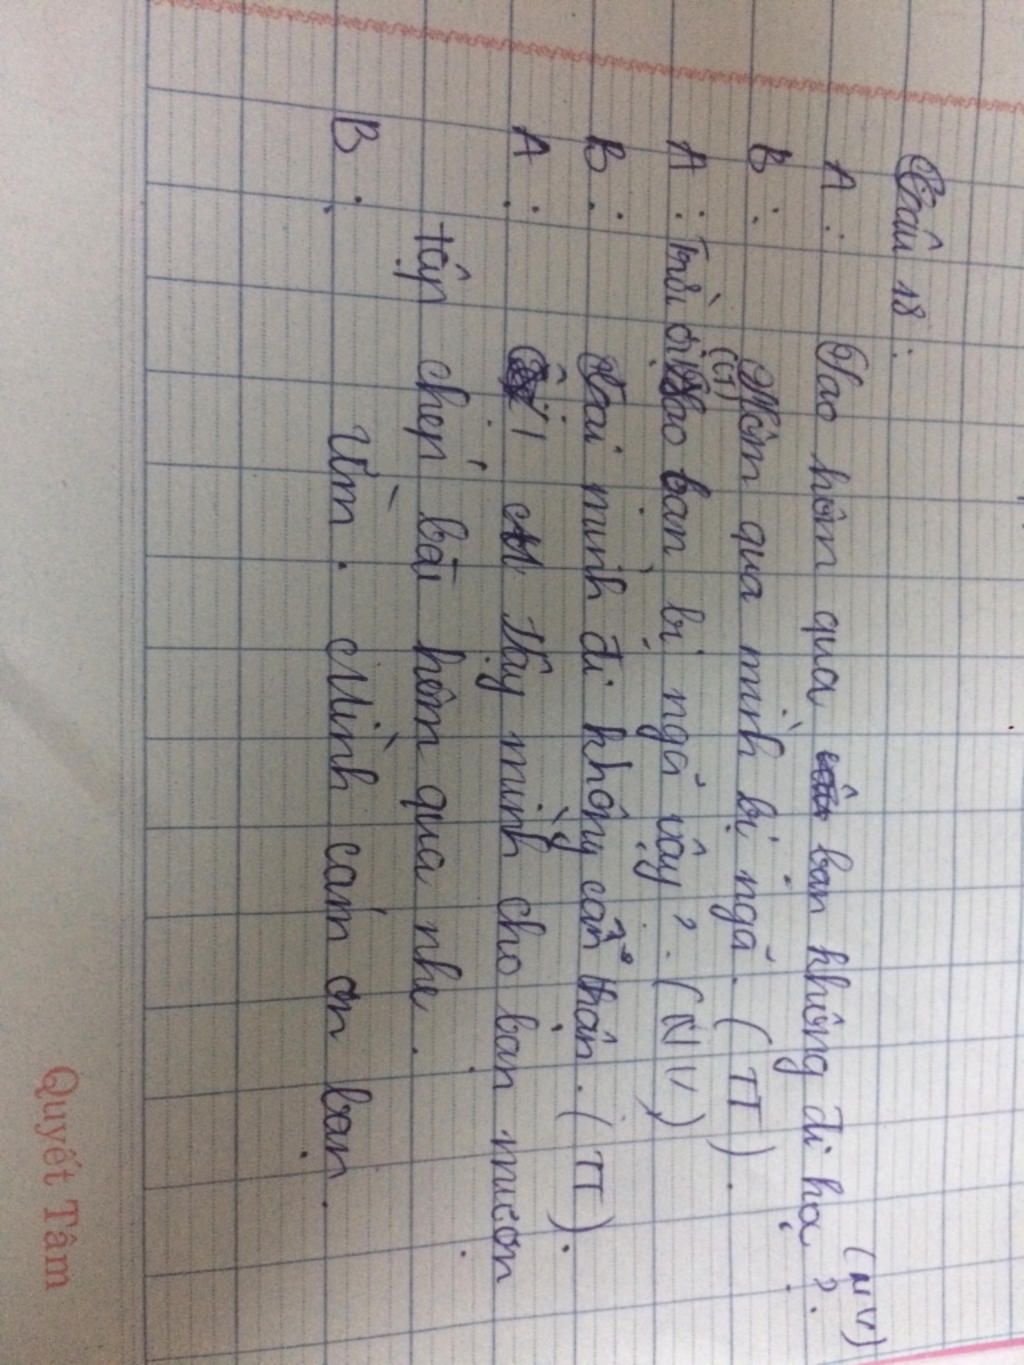 Câu 18:
A: Sao hôm qua bạn không đi học? (NV)
B: Hôm qua mình bị ngã. (TT).
A: Trời ơi! Sao bạn bị ngã vậy? (NV)
(CT)
B: Tại mình đi không cẩn thận. (TT).
A: Vậy mình cho bạn mượn
tập chép bài hôm qua nhe.
B: Ừm. Mình cảm ơn bạn.
Quyết Tâm